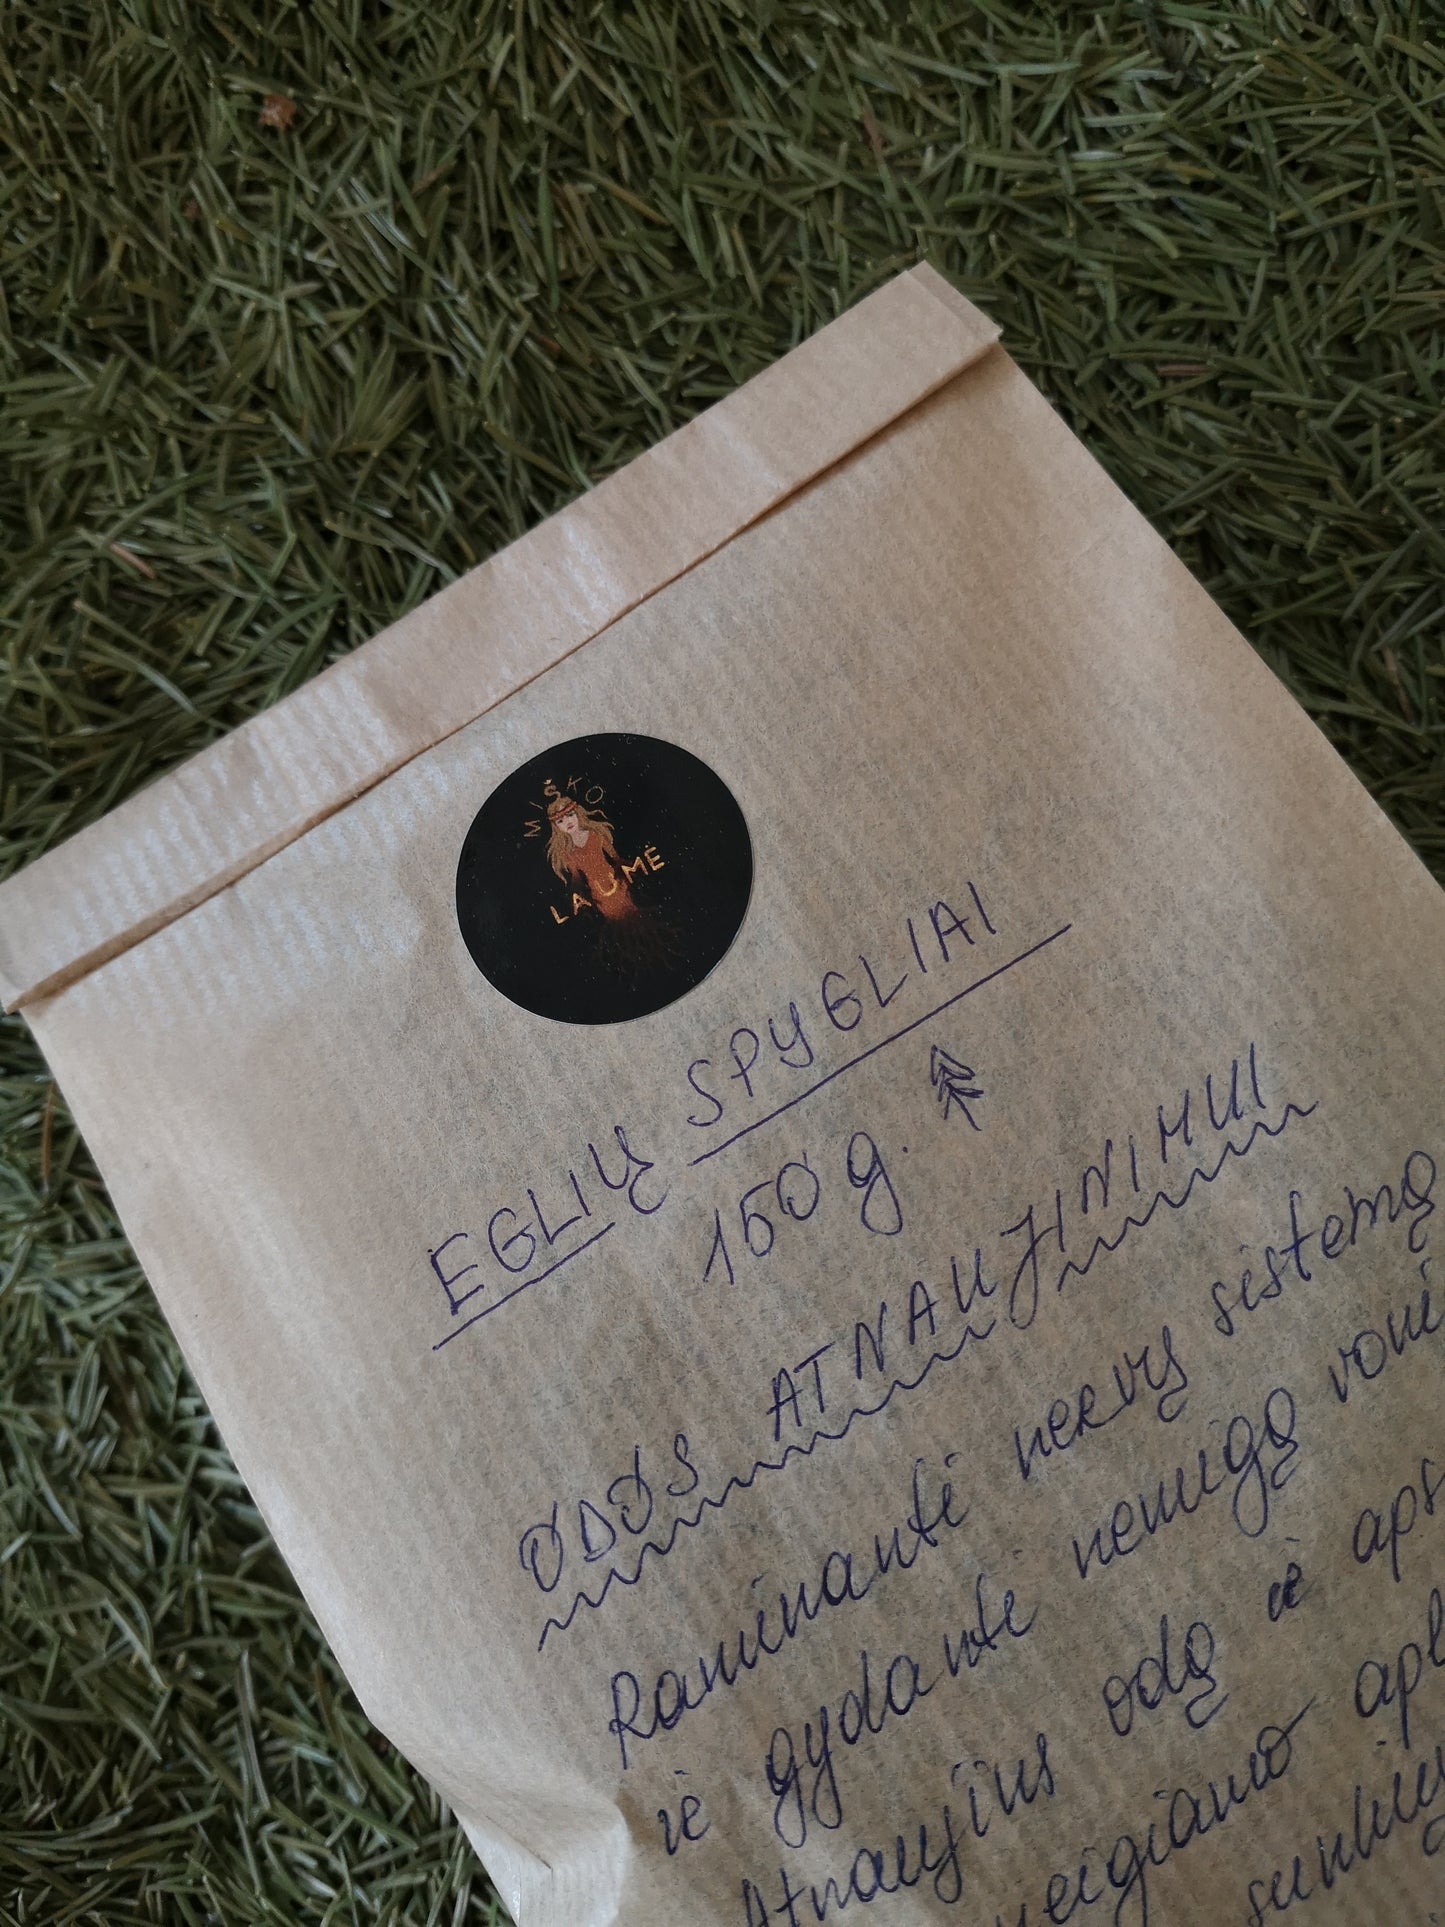 MIŠKO
LAUMĖ
EGLIŲ SPYGLIAI
150 g.
ODOS ATNAUJINIMUI
Raminanti nervų sistemą
ir gydanti nemigą voni
Atnaujins odą ir aps
neigiamo apl
sunkių